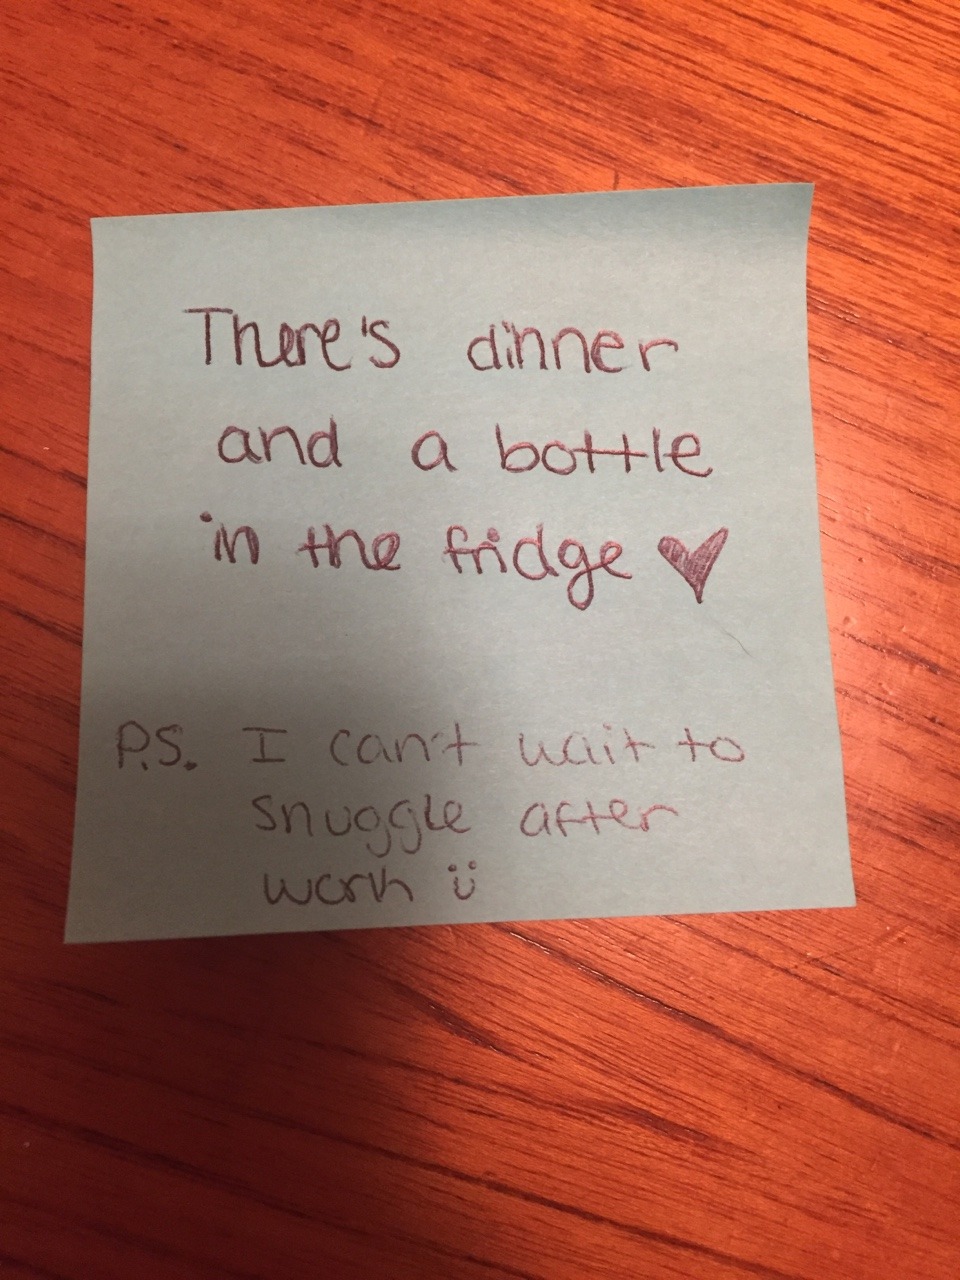 There's dinner
and a bottle
in the fridge ♥
P.S. I can't wait to
snuggle after
work ü